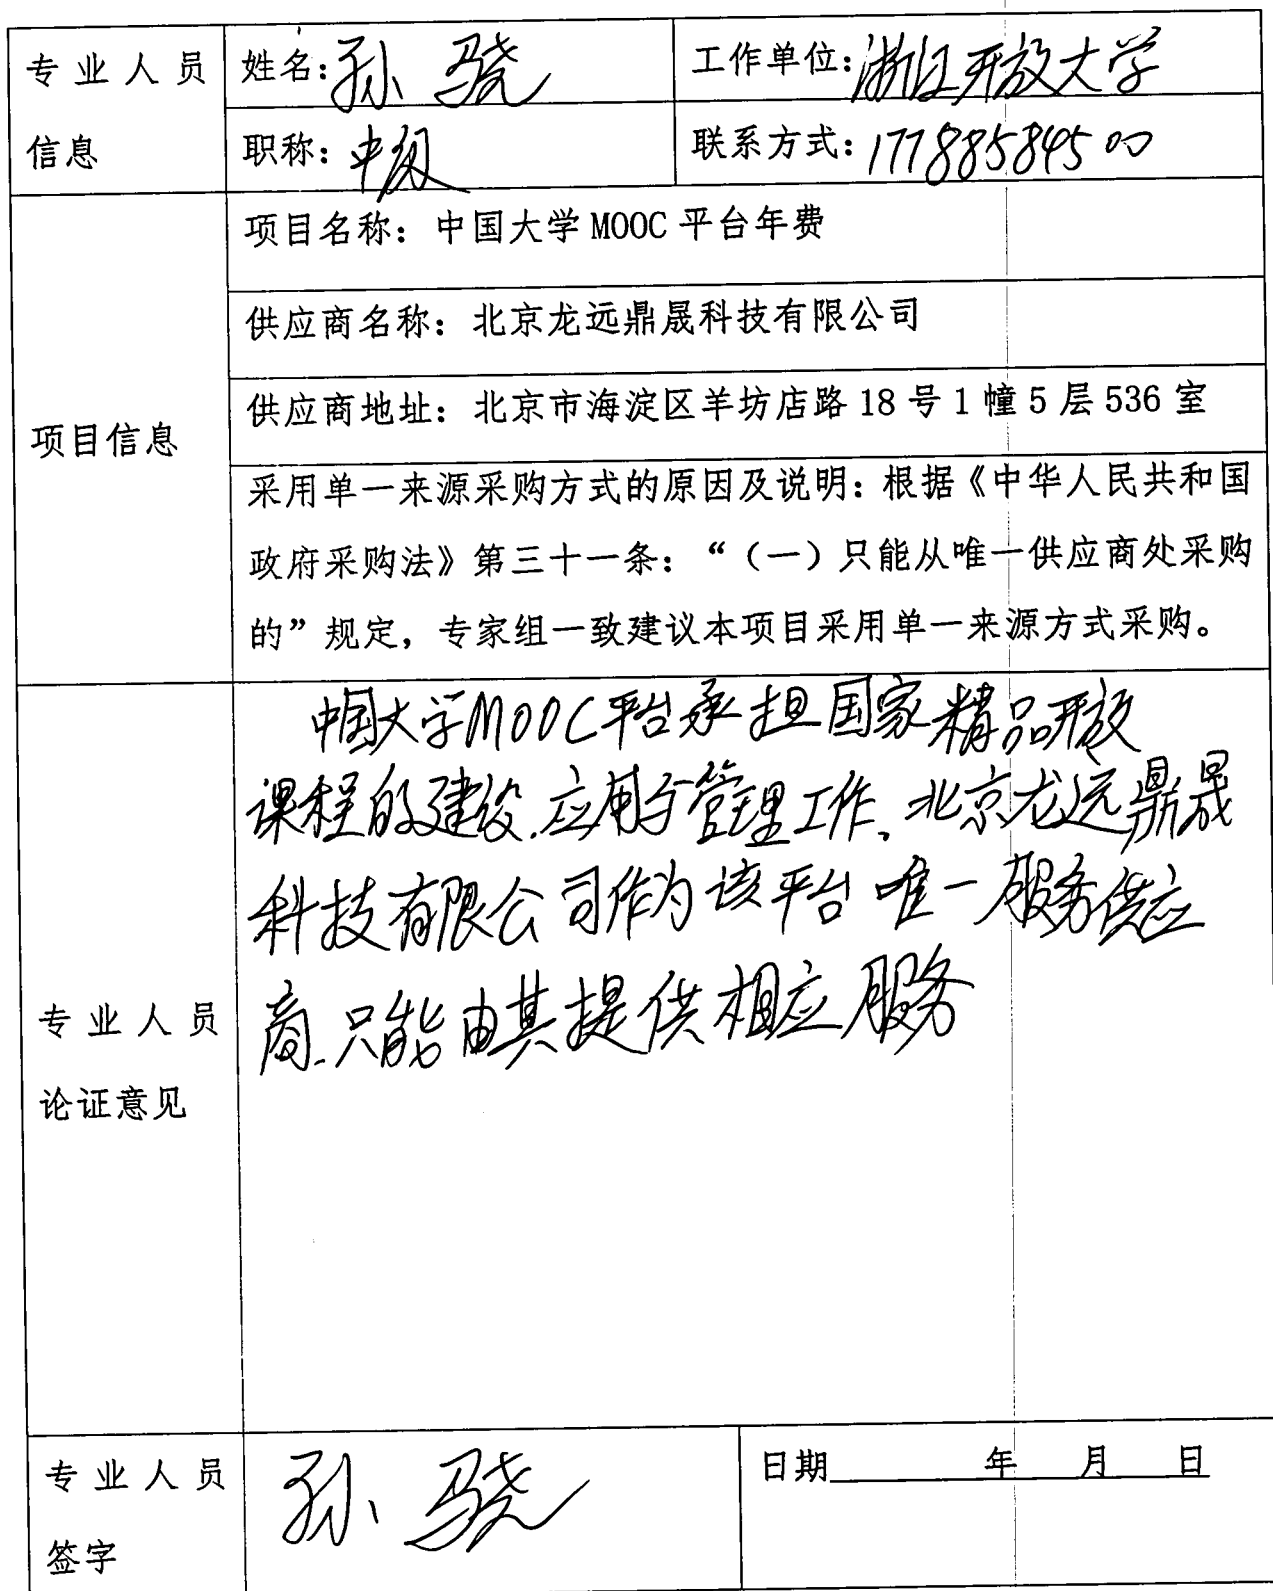 专业人员信息
姓名：孙骁
工作单位：浙江开放大学
职称：中级
联系方式：17788584500
项目信息
项目名称：中国大学MOOC平台年费
供应商名称：北京龙远鼎晟科技有限公司
供应商地址：北京市海淀区羊坊店路18号1幢5层536室
采用单一来源采购方式的原因及说明：根据《中华人民共和国
政府采购法》第三十一条：“（一）只能从唯一供应商处采购
的”规定，专家组一致建议本项目采用单一来源方式采购。
专业人员
论证意见
中国大学MOOC平台承担国家精品开放
课程的建设、应用与管理工作、北京龙远鼎晟
科技有限公司作为该平台唯一服务供应
商、只能由其提供相应服务
专业人员
签字
孙骁
日期 年 月 日